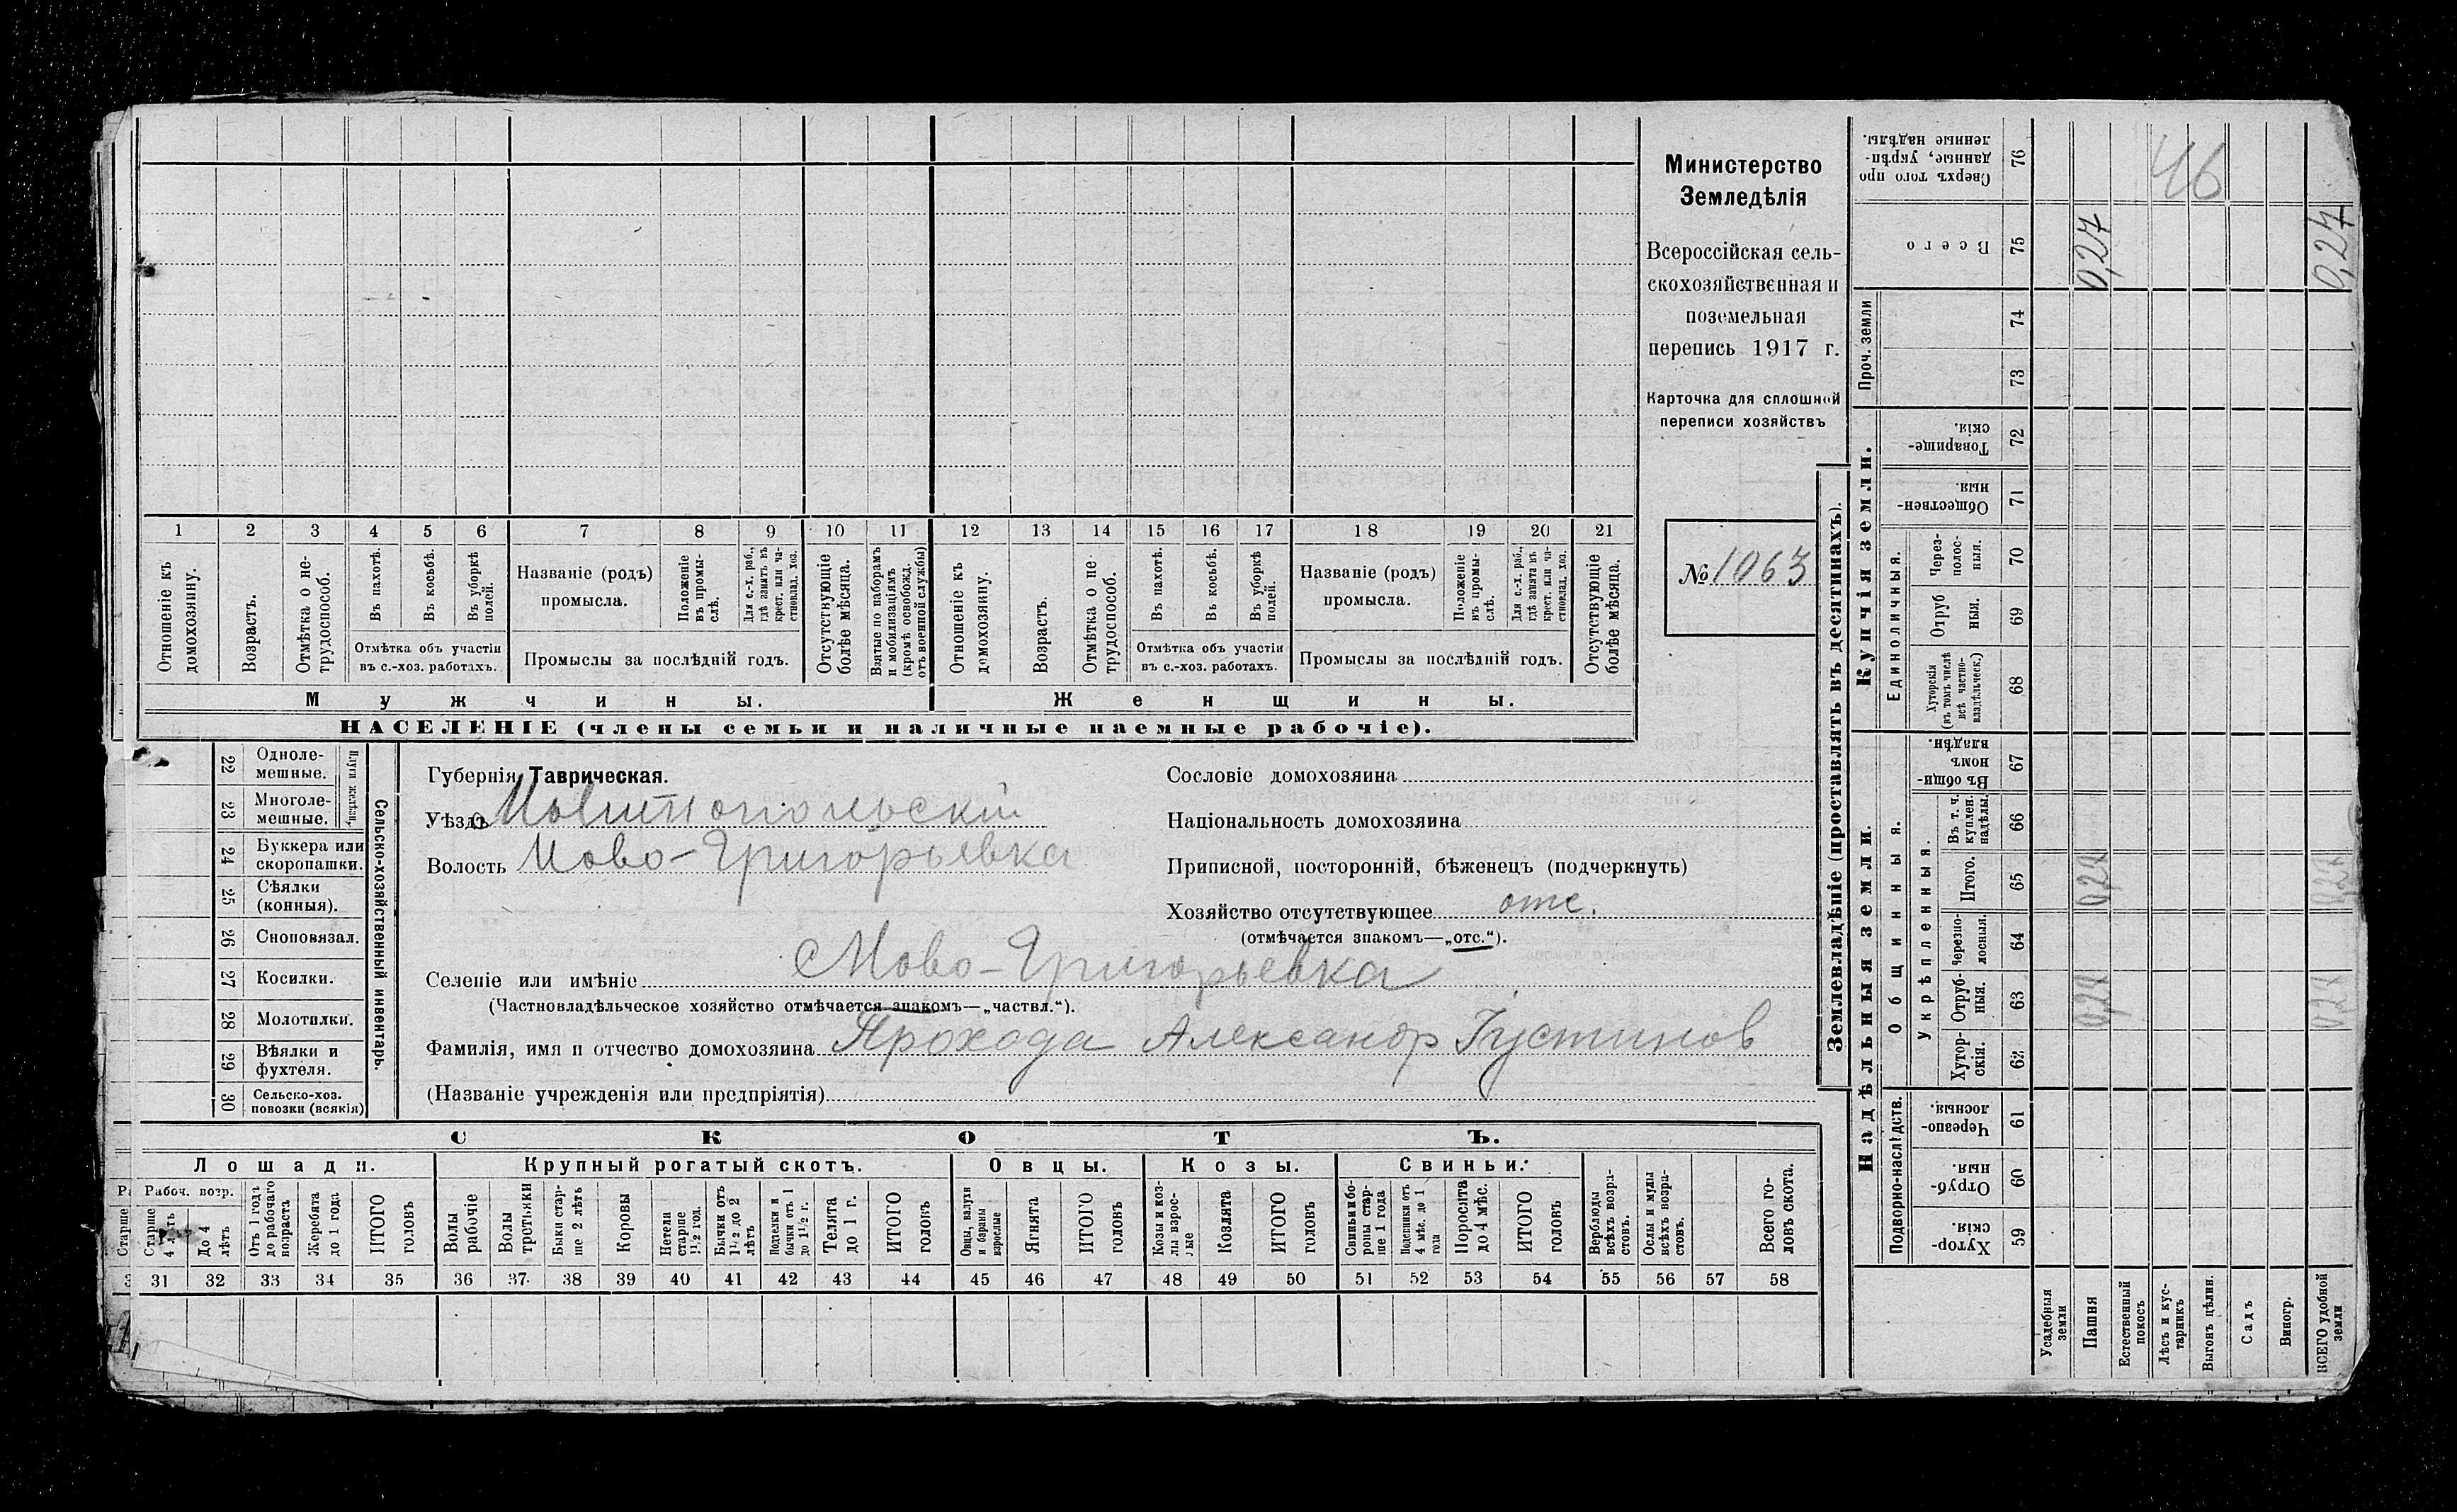 Министерство
Земледѣлія
Всероссійская сель-
скохозяйственная и
поземельная
перепись 1917 г.
Карточка для сплошной
переписи хозяйствъ
№ 1063
1 2 3 4 5 6 7 8 9 10 11 12 13 14 15 16 17 18 19 20 21
Отношеніе къ домохозяину.
Возрастъ.
Отмѣтка о не-трудоспособ.
Въ пахотѣ.
Въ косьбѣ.
Въ уборкѣ полей.
Отмѣтка объ участіи
въ с.-хоз. работахъ.
Названіе (родъ)
промысла.
Положеніе въ промы-слѣ.
Для с.-х. раб., гдѣ занятъ въ крест. или ча-стновлад. хоз.
Промыслы за послѣдній годъ.
Отсутствующіе болѣе мѣсяца.
Взятые по наборамъ и мобилизаціямъ (кромѣ освобожд. отъ военной службы)
Отношеніе къ домохозяину.
Возрастъ.
Отмѣтка о не-трудоспособ.
Въ пахотѣ.
Въ косьбѣ.
Въ уборкѣ полей.
Отмѣтка объ участіи
въ с.-хоз. работахъ.
Названіе (родъ)
промысла.
Положеніе въ промы-слѣ.
Для с.-х. раб., гдѣ занята въ крест. или ча-стновлад. хоз.
Промыслы за послѣдній годъ.
Отсутствующіе болѣе мѣсяца.
Мужчины.
Женщины.
НАСЕЛЕНІЕ (члены семьи и наличные наемные рабочіе).
22 Одноле-мешные.
23 Многоле-мешные.
Плуги желѣзн.
24 Буккера или скоропашки.
25 Сѣялки (конныя).
26 Сноповязал.
27 Косилки.
28 Молотилки.
29 Вѣялки и фухтеля.
30 Сельско-хоз. повозки (всякія)
Сельско-хозяйственный инвентарь.
Губернія Таврическая.
Уѣздъ Мелитопольскій
Волость Ново-Григорьевка
Сословіе домохозяина
Національность домохозяина
Приписной, посторонній, бѣженецъ (подчеркнуть)
Хозяйство отсутствующее отс.
(отмѣчается знакомъ—„отс.“).
Селеніе или имѣніе Ново-Григорьевка
(Частновладѣльческое хозяйство отмѣчается знакомъ—„частвл.“).
Фамилія, имя и отчество домохозяина Прохода Александр Густинов
(Названіе учрежденія или предпріятія)
СКОТЪ.
Лошади. Крупный рогатый скотъ. Овцы. Козы. Свиньи.
Рабоч. возр.
Старше 4 лѣтъ
До 4 лѣтъ
Отъ 1 года до рабочаго возраста
Жеребята до 1 года
ИТОГО головъ
Волы рабочіе
Волы третьяки
Быки стар-ше 2 лѣтъ
Коровы
Нетели старше 1½ год.
Бычки отъ 1½ до 2 лѣтъ
Подтелки и бычки отъ 1 до 1½ г.
Телята до 1 г.
ИТОГО головъ
Овцы, валухи и бараны взрослые
Ягнята
ИТОГО головъ
Козы и коз-лы взрос-лые
Козлята
ИТОГО головъ
Свиньи и бо-ровы стар-ше 1 года
Подсвинки отъ 4 мѣс. до 1 года
Поросята до 4 мѣс.
ИТОГО головъ
Верблюды всѣхъ возра-стовъ.
Ослы и мулы всѣхъ возра-стовъ.
Всего го-ловъ скота.
31 32 33 34 35 36 37 38 39 40 41 42 43 44 45 46 47 48 49 50 51 52 53 54 55 56 57 58
Землевладѣніе (проставлять въ десятинахъ).
Надѣльныя земли.
Купчія земли.
Проч. земли
Подворно-наслѣдств.
Общинныя.
Укрѣпленныя.
Единоличныя.
Сверхъ того про данные, укрѣп-ленные надѣлы. 76
Всего 75 0,27 0,27
46
74
73
Товарище-скія. 72
Обществен-ныя. 71
Через-полос-ныя. 70
Отруб ныя. 69
Хуторскія (въ томъ числѣ всѣ частно-владѣльческ.) 68
Въ общи-номъ владѣн. 67
Въ т. ч. куплен. надѣлы. 66
Итого. 65
Черезпо-лосныя. 64
Отруб-ныя. 63
Хутор-скія. 62
Черезпо-лосныя. 61
Отруб-ныя. 60
Хутор-скія. 59
Усадебныя земли
Пашня
Естественный покосъ
Лѣсъ и кус-тарникъ
Выгонъ цѣлин.
Садъ
Виногр.
ВСЕГО удобной земли